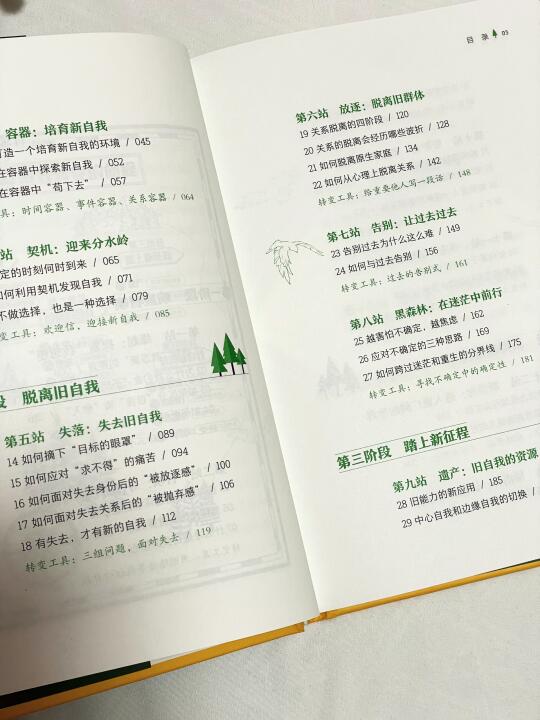 容器：培育新自我
造一个培育新自我的环境 / 045
在容器中探索新自我 / 052
在容器中“苟下去” / 057
具：时间容器、事件容器、关系容器 / 064
站 契机：迎来分水岭
定的时刻何时到来 / 065
何利用契机发现自我 / 071
不做选择，也是一种选择 / 079
变工具：欢迎信，迎接新自我 / 085
段 脱离旧自我
第五站 失落：失去旧自我
14 如何摘下“目标的眼罩” / 089
15 如何应对“求不得”的痛苦 / 094
16 如何面对失去身份后的“被放逐感” / 100
17 如何面对失去关系后的“被抛弃感” / 106
18 有失去，才有新的自我 / 112
转变工具：三组问题，面对失去 / 119
目 录 05
第六站 放逐：脱离旧群体
19 关系脱离的四阶段 / 120
20 关系的脱离会经历哪些波折 / 128
21 如何脱离原生家庭 / 134
22 如何从心理上脱离关系 / 142
转变工具：给重要他人写一段话 / 148
第七站 告别：让过去过去
23 告别过去为什么这么难 / 149
24 如何与过去告别 / 156
转变工具：过去的告别式 / 161
第八站 黑森林：在迷茫中前行
25 越害怕不确定，越焦虑 / 162
26 应对不确定的三种思路 / 169
27 如何跨过迷茫和重生的分界线 / 175
转变工具：寻找不确定中的确定性 / 181
第三阶段 踏上新征程
第九站 遗产：旧自我的资源
28 旧能力的新应用 / 185
29 中心自我和边缘自我的切换 /